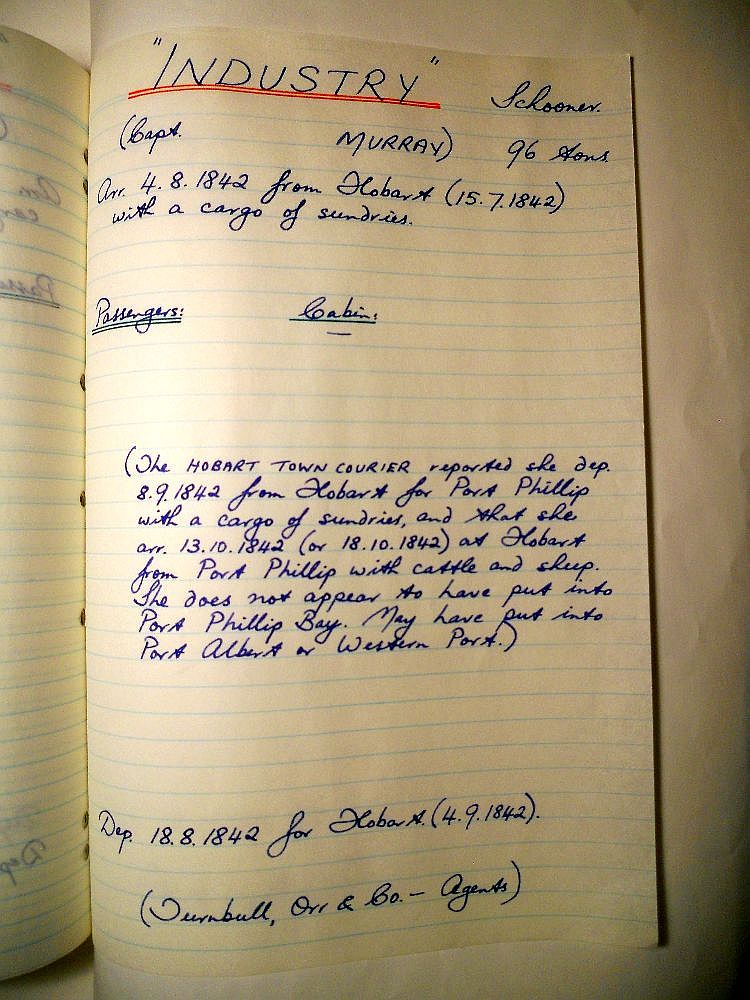 "INDUSTRY" Schooner.
(Capt. MURRAY) 96 tons.
Arr. 4.8.1842 from Hobart (15.7.1842)
with a cargo of sundries.
Passengers: Cabin:
—
(The HOBART TOWN COURIER reported she dep.
8.9.1842 from Hobart for Port Phillip
with a cargo of sundries, and that she
arr. 13.10.1842 (or 18.10.1842) at Hobart
from Port Phillip with cattle and sheep.
She does not appear to have put into
Port Phillip Bay. May have put into
Port Albert or Western Port.)
Dep. 18.8.1842 for Hobart (4.9.1842).
(Turnbull, Orr & Co. — Agents)